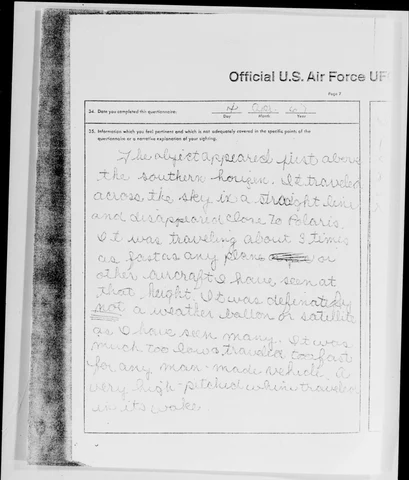 Official U.S. Air Force UF
Page 7
34. Date you completed this questionnaire:
Day Month Year
35. Information which you feel pertinent and which is not adequately covered in the specific points of the
questionnaire or a narrative explanation of your sighting.
The object appeared just above
the southern horizen. It traveled
across the sky in a straight line
and disappeared close to Polaris.
It was traveling about 3 times
as fast as any plane or
other aircraft I have seen at
that height. It was definately
not a weather ballon or satellite
as I have seen many. It was
much too low & traveled too fast
for any man-made vehicle. A
very high-pitched whine traveled
in its wake.